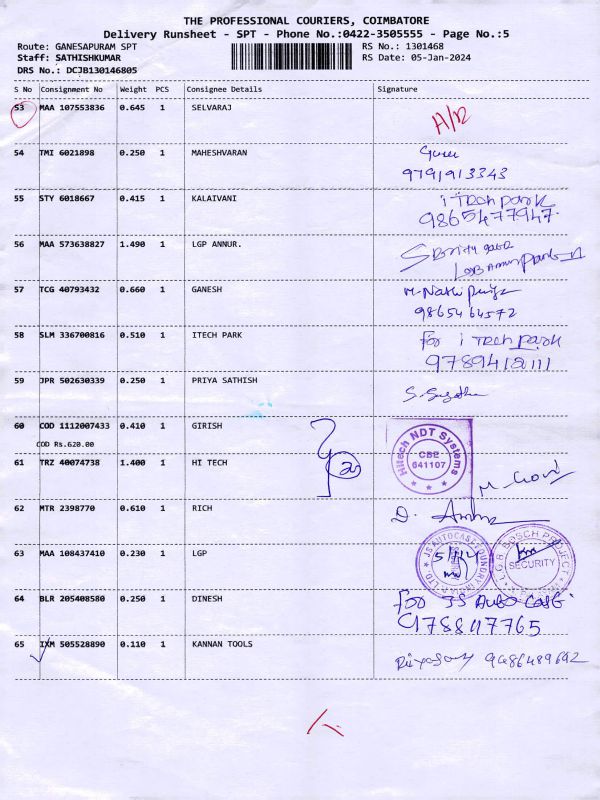 THE PROFESSIONAL COURIERS, COIMBATORE
Delivery Runsheet - SPT - Phone No.:0422-3505555 - Page No.:5
Route: GANESAPURAM SPT RS No.: 1301468
Staff: SATHISHKUMAR RS Date: 05-Jan-2024
DRS No.: DCJB130146805
S No Consignment No Weight PCS Consignee Details Signature
53 MAA 107553836 0.645 1 SELVARAJ
54 TMI 6021898 0.250 1 MAHESHVARAN
9791913343
55 STY 6018667 0.415 1 KALAIVANI i Tech park
9865477947
56 MAA 573638827 1.490 1 LGP ANNUR.
57 TCG 40793432 0.660 1 GANESH
9865464572
58 SLM 336700816 0.510 1 ITECH PARK For i Tech park
59 JPR 502630339 0.250 1 PRIYA SATHISH
60 COD 1112007433 0.410 1 GIRISH
COD Rs.620.00
Hitech NDT Systems
CBE
641107
61 TRZ 40074738 1.400 1 HI TECH
62 MTR 2398770 0.610 1 RICH
63 MAA 108437410 0.230 1 LGP
SECURITY
64 BLR 205408580 0.250 1 DINESH For JS Auto Cast
65 IXM 505528890 0.110 1 KANNAN TOOLS 9486489692